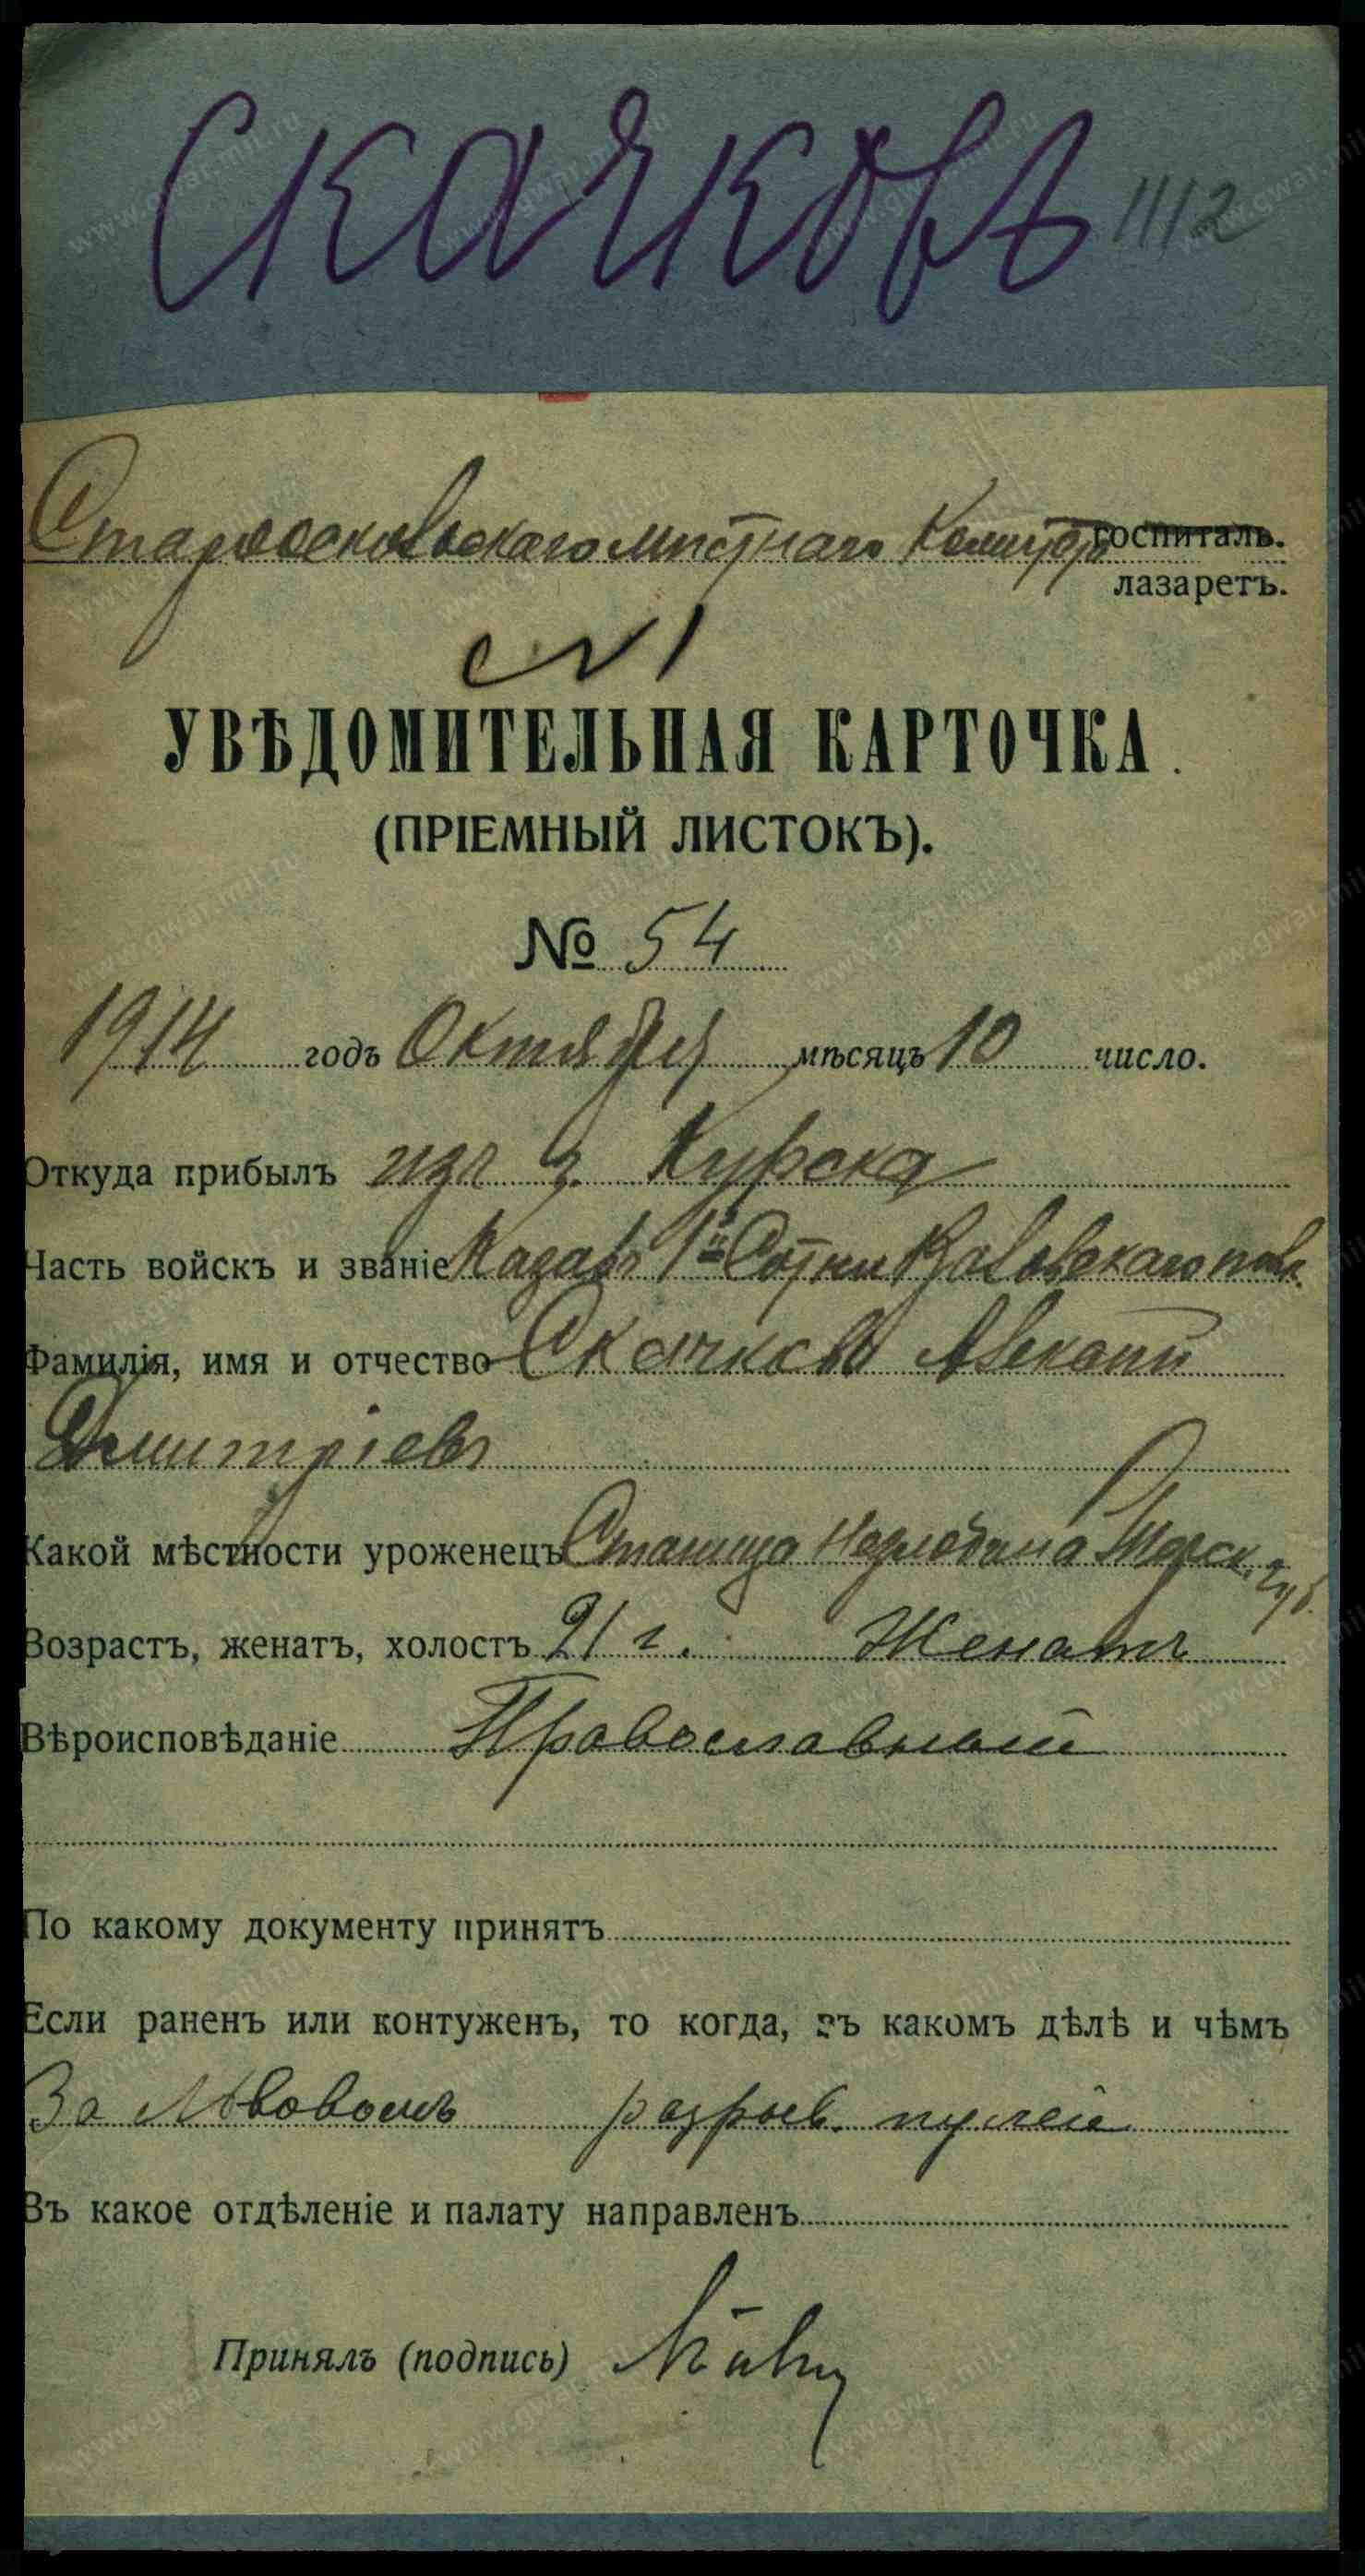 Скачковъ 1112
Старооскольскаго мѣстнаго Комитета госпиталь.
лазаретъ.
№ 1
УВѢДОМИТЕЛЬНАЯ КАРТОЧКА.
(ПРІЕМНЫЙ ЛИСТОКЪ).
№ 54
1914 годъ Октября мѣсяцъ 10 число.
Откуда прибылъ изъ г. Курска
Часть войскъ и званіе Казакъ 1й Сотни полк.
Фамилія, имя и отчество Скачковъ
Дмитріевъ
Какой мѣстности уроженецъ Станица Незлобина Терск. губ.
Возрастъ, женатъ, холостъ 21 г. Женатъ
Вѣроисповѣданіе Православный
По какому документу принятъ
Если раненъ или контуженъ, то когда, въ какомъ дѣлѣ и чѣмъ
За Львовомъ разрыв. пулей
Въ какое отдѣленіе и палату направленъ
Принялъ (подпись)
www.gwar.mil.ru